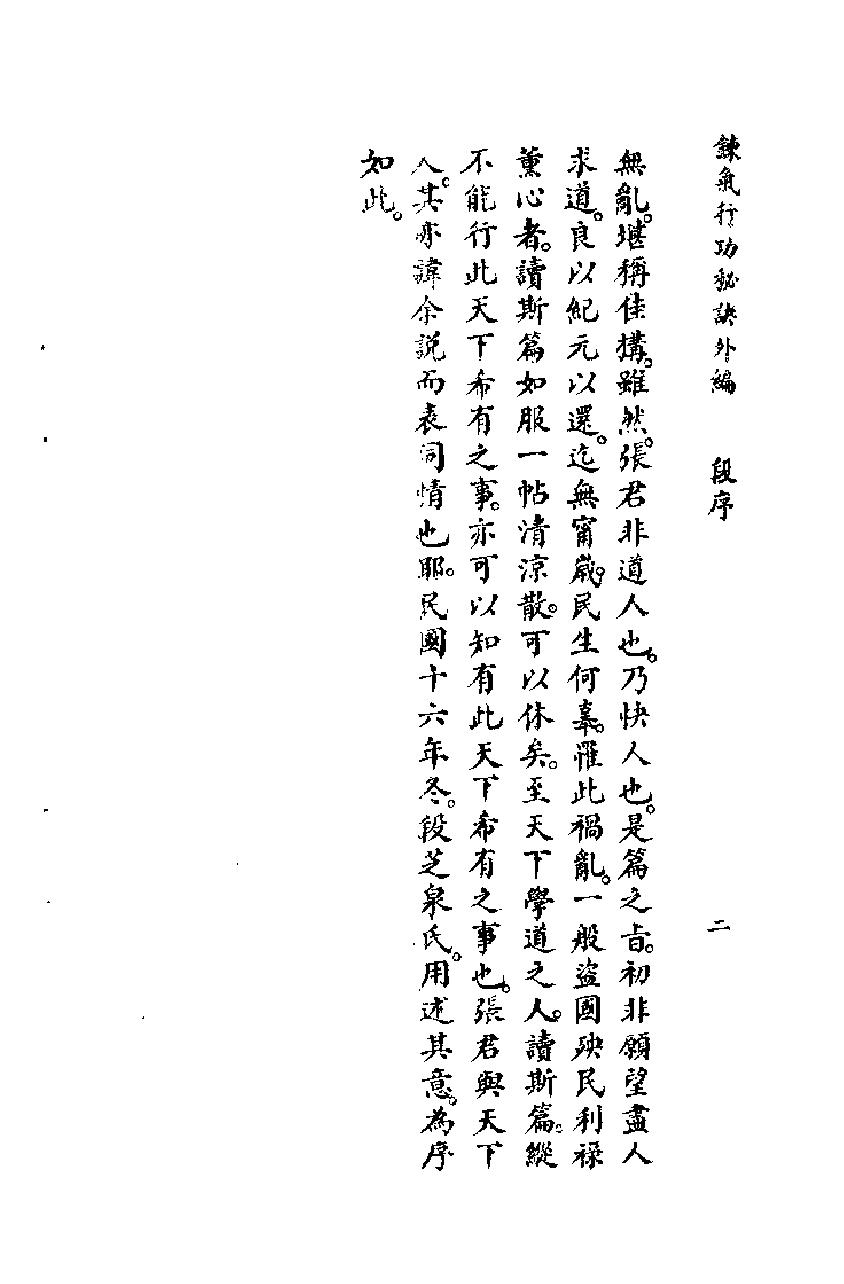 鍊氣行功秘訣外編　段序　二
無亂。堪稱佳構。雖然。張君非道人也。乃快人也。是篇之旨。初非願望盡人
求道。良以紀元以還。迄無甯歲。民生何辜。罹此禍亂。一般盜國殃民利祿
薰心者。讀斯篇如服一帖清涼散。可以休矣。至天下學道之人。讀斯篇。縱
不能行此天下希有之事。亦可以知有此天下希有之事也。張君與天下
人。其亦諱余説而表同情也耶。民國十六年冬。段芝泉氏。用述其意。為序
如此。